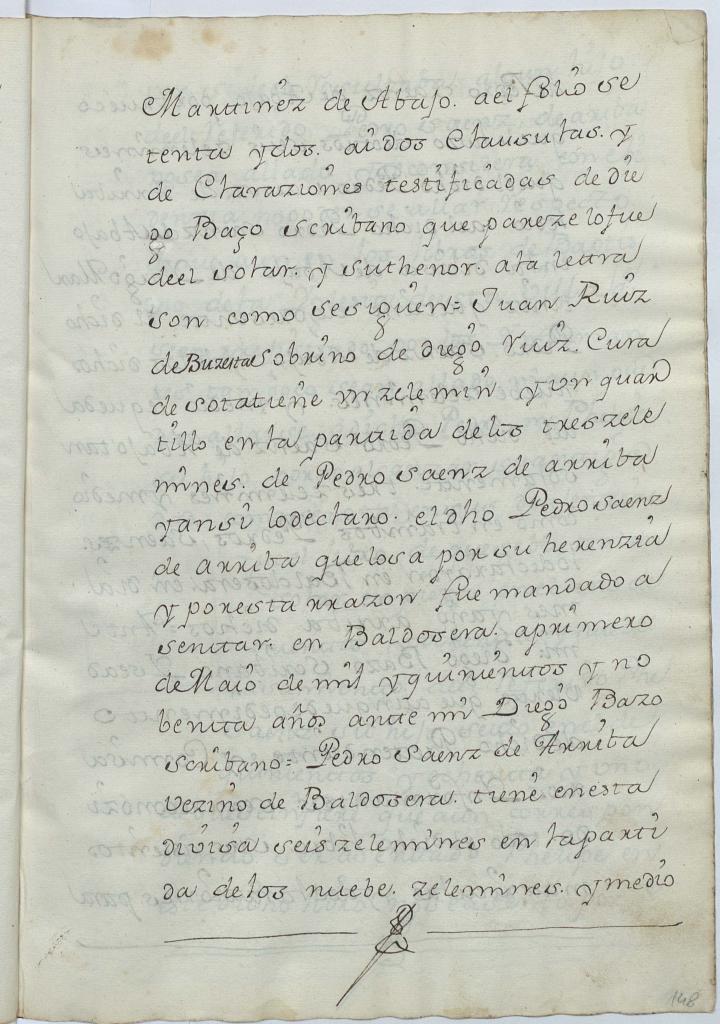 Martinez de Abajo. ael folio se
tenta ydos. ai dos Clausulas. y
de Claraziones testificadas de die
go Baço scribano que pareze lo fue
deel solar. y su thenor. ala lettra
son como se siguen = Juan Ruiz
de Buzesta Sobrino de diego ruiz. Cura
de sota tiene vn zelemin y vn quar
tillo en la partida delos tres zele
mines. de Pedro saenz de arriba
yansi lo declaro. el dho Pedro saenz
de arriba que los a por su herenzia
y por esta rrazon fue mandado a
sentar. en Baldosera. a primero
de Maio de mil y quinientos y no
benta años ante mi Diego Bazo
scribano = Pedro Saenz de Arriba
vezino de Baldosera. tiene en esta
divisa seis zelemines en la parti
da de los nuebe. zelemines. y medio
148